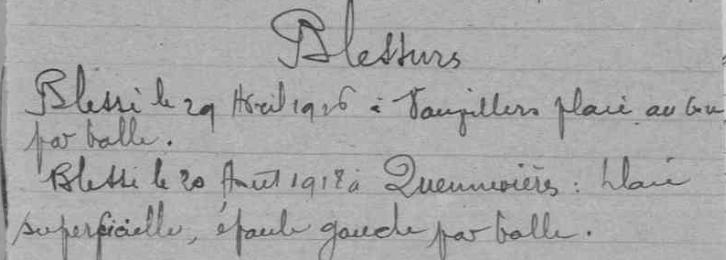 Blessurs
Blessé le 29 Avril 1916 à plaie au
par balle.
Blessé le 20 Août 1918 à Quennevières : Plaie
superficielle, épaule gauche par balle.